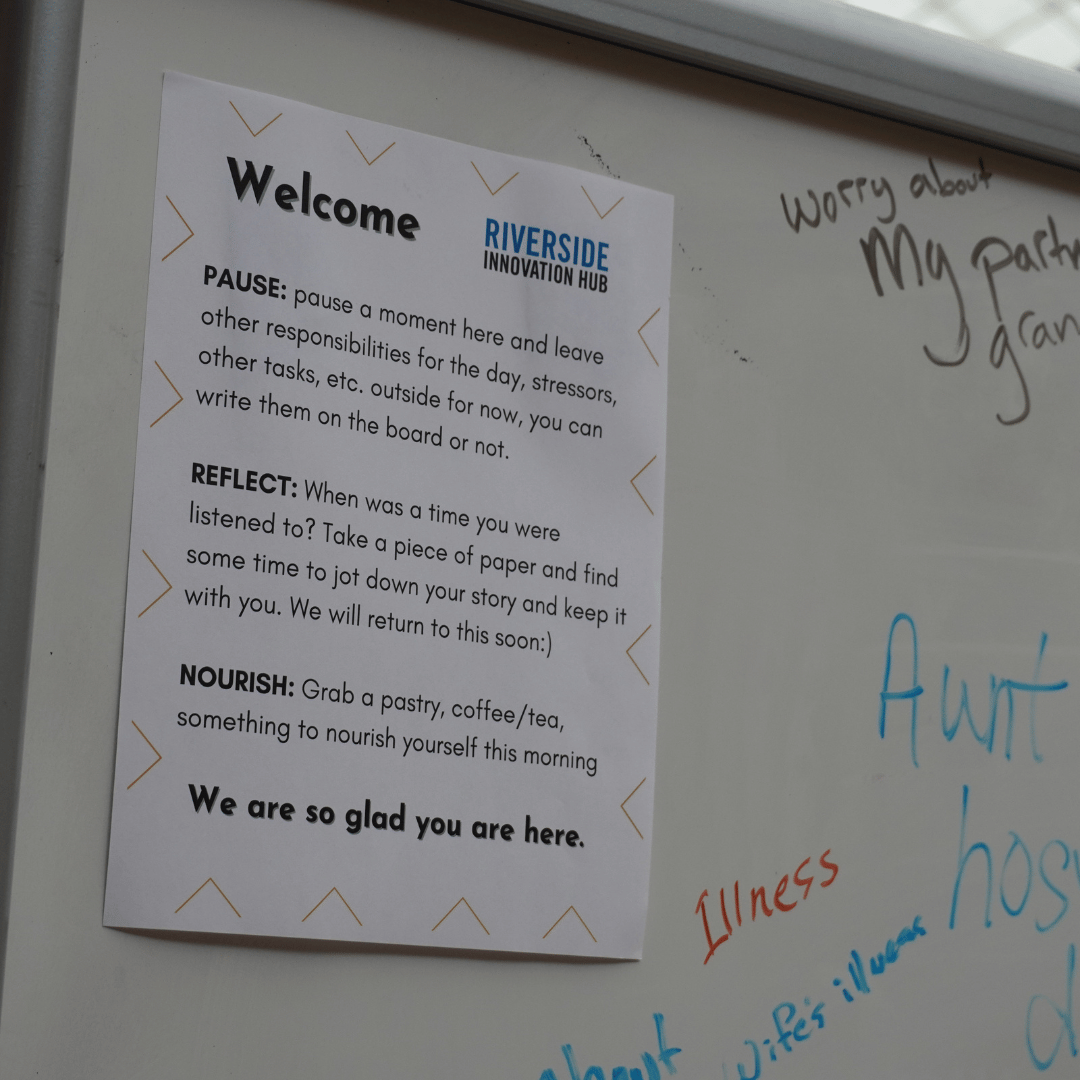 Welcome
RIVERSIDE
INNOVATION HUB
PAUSE: pause a moment here and leave
other responsibilities for the day, stressors,
other tasks, etc. outside for now, you can
write them on the board or not.
REFLECT: When was a time you were
listened to? Take a piece of paper and find
some time to jot down your story and keep it
with you. We will return to this soon:)
NOURISH: Grab a pastry, coffee/tea,
something to nourish yourself this morning
We are so glad you are here.
worry about
My
Aunt
Illness
wife's illness